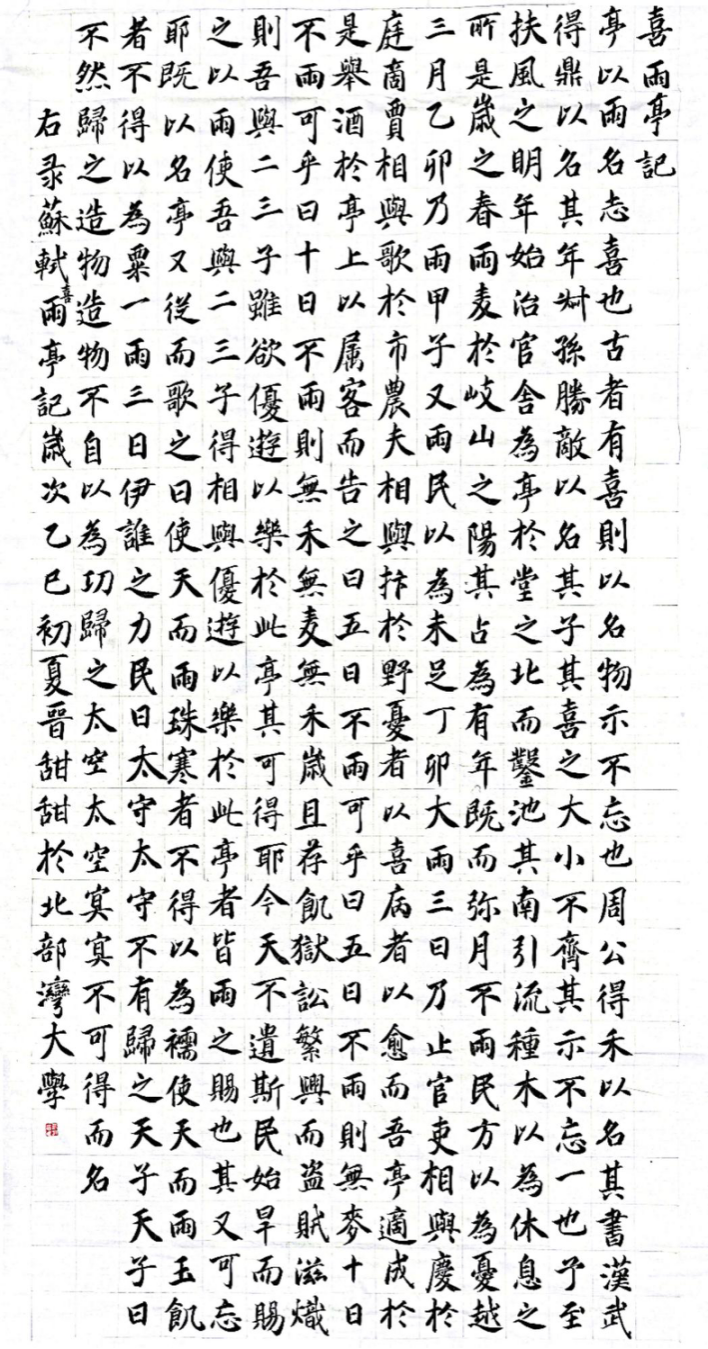 喜雨亭記
亭以雨名志喜也古者有喜則以名物示不忘也周公得禾以名其書漢武
得鼎以名其年叔孫勝敵以名其子其喜之大小不齊其示不忘一也予至
扶風之明年始治官舍為亭於堂之北而鑿池其南引流種木以為休息之
所是歲之春雨麦於岐山之陽其占為有年既而弥月不雨民方以為憂越
三月乙卯乃雨甲子又雨民以為未足丁卯大雨三日乃止官吏相與慶於
庭商賈相與歌於市農夫相與抃於野憂者以喜病者以愈而吾亭適成於
是舉酒於亭上以属客而告之曰五日不雨可乎曰五日不雨則無麥十日
不雨可乎曰十日不雨則無禾無麦無禾歲且荐飢獄訟繁興而盗賊滋熾
則吾與二三子雖欲優遊以樂於此亭其可得耶今天不遺斯民始旱而賜
之以雨使吾與二三子得相與優遊以樂於此亭者皆雨之賜也其又可忘
耶既以名亭又從而歌之曰使天而雨珠寒者不得以為襦使天而雨玉飢
者不得以為粟一雨三日伊誰之力民曰太守太守不有歸之天子天子曰
不然歸之造物造物不自以為功歸之太空太空冥冥不可得而名
右录蘇軾喜雨亭記歲次乙巳初夏晉甜甜於北部灣大學